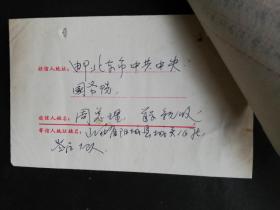 收信人地址：邮北京市中共中央
国务院
收信人姓名：周总理 亲收
寄信人地址姓名：山西省阳城县城关公社